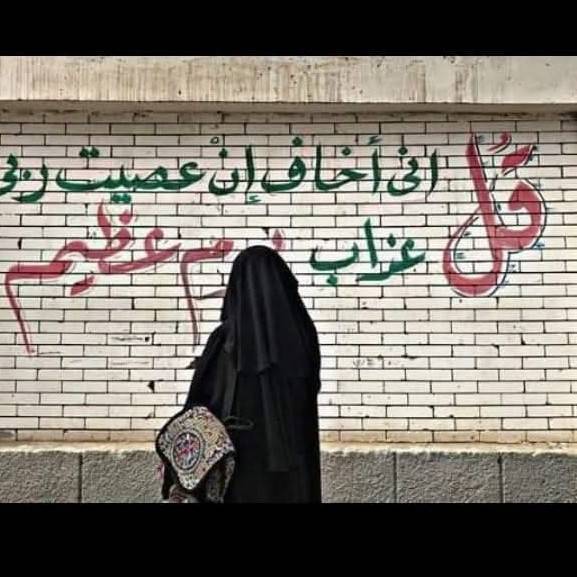 قُل انى أخاف إنْ عصيت ربي
عزاب يوم عظيم